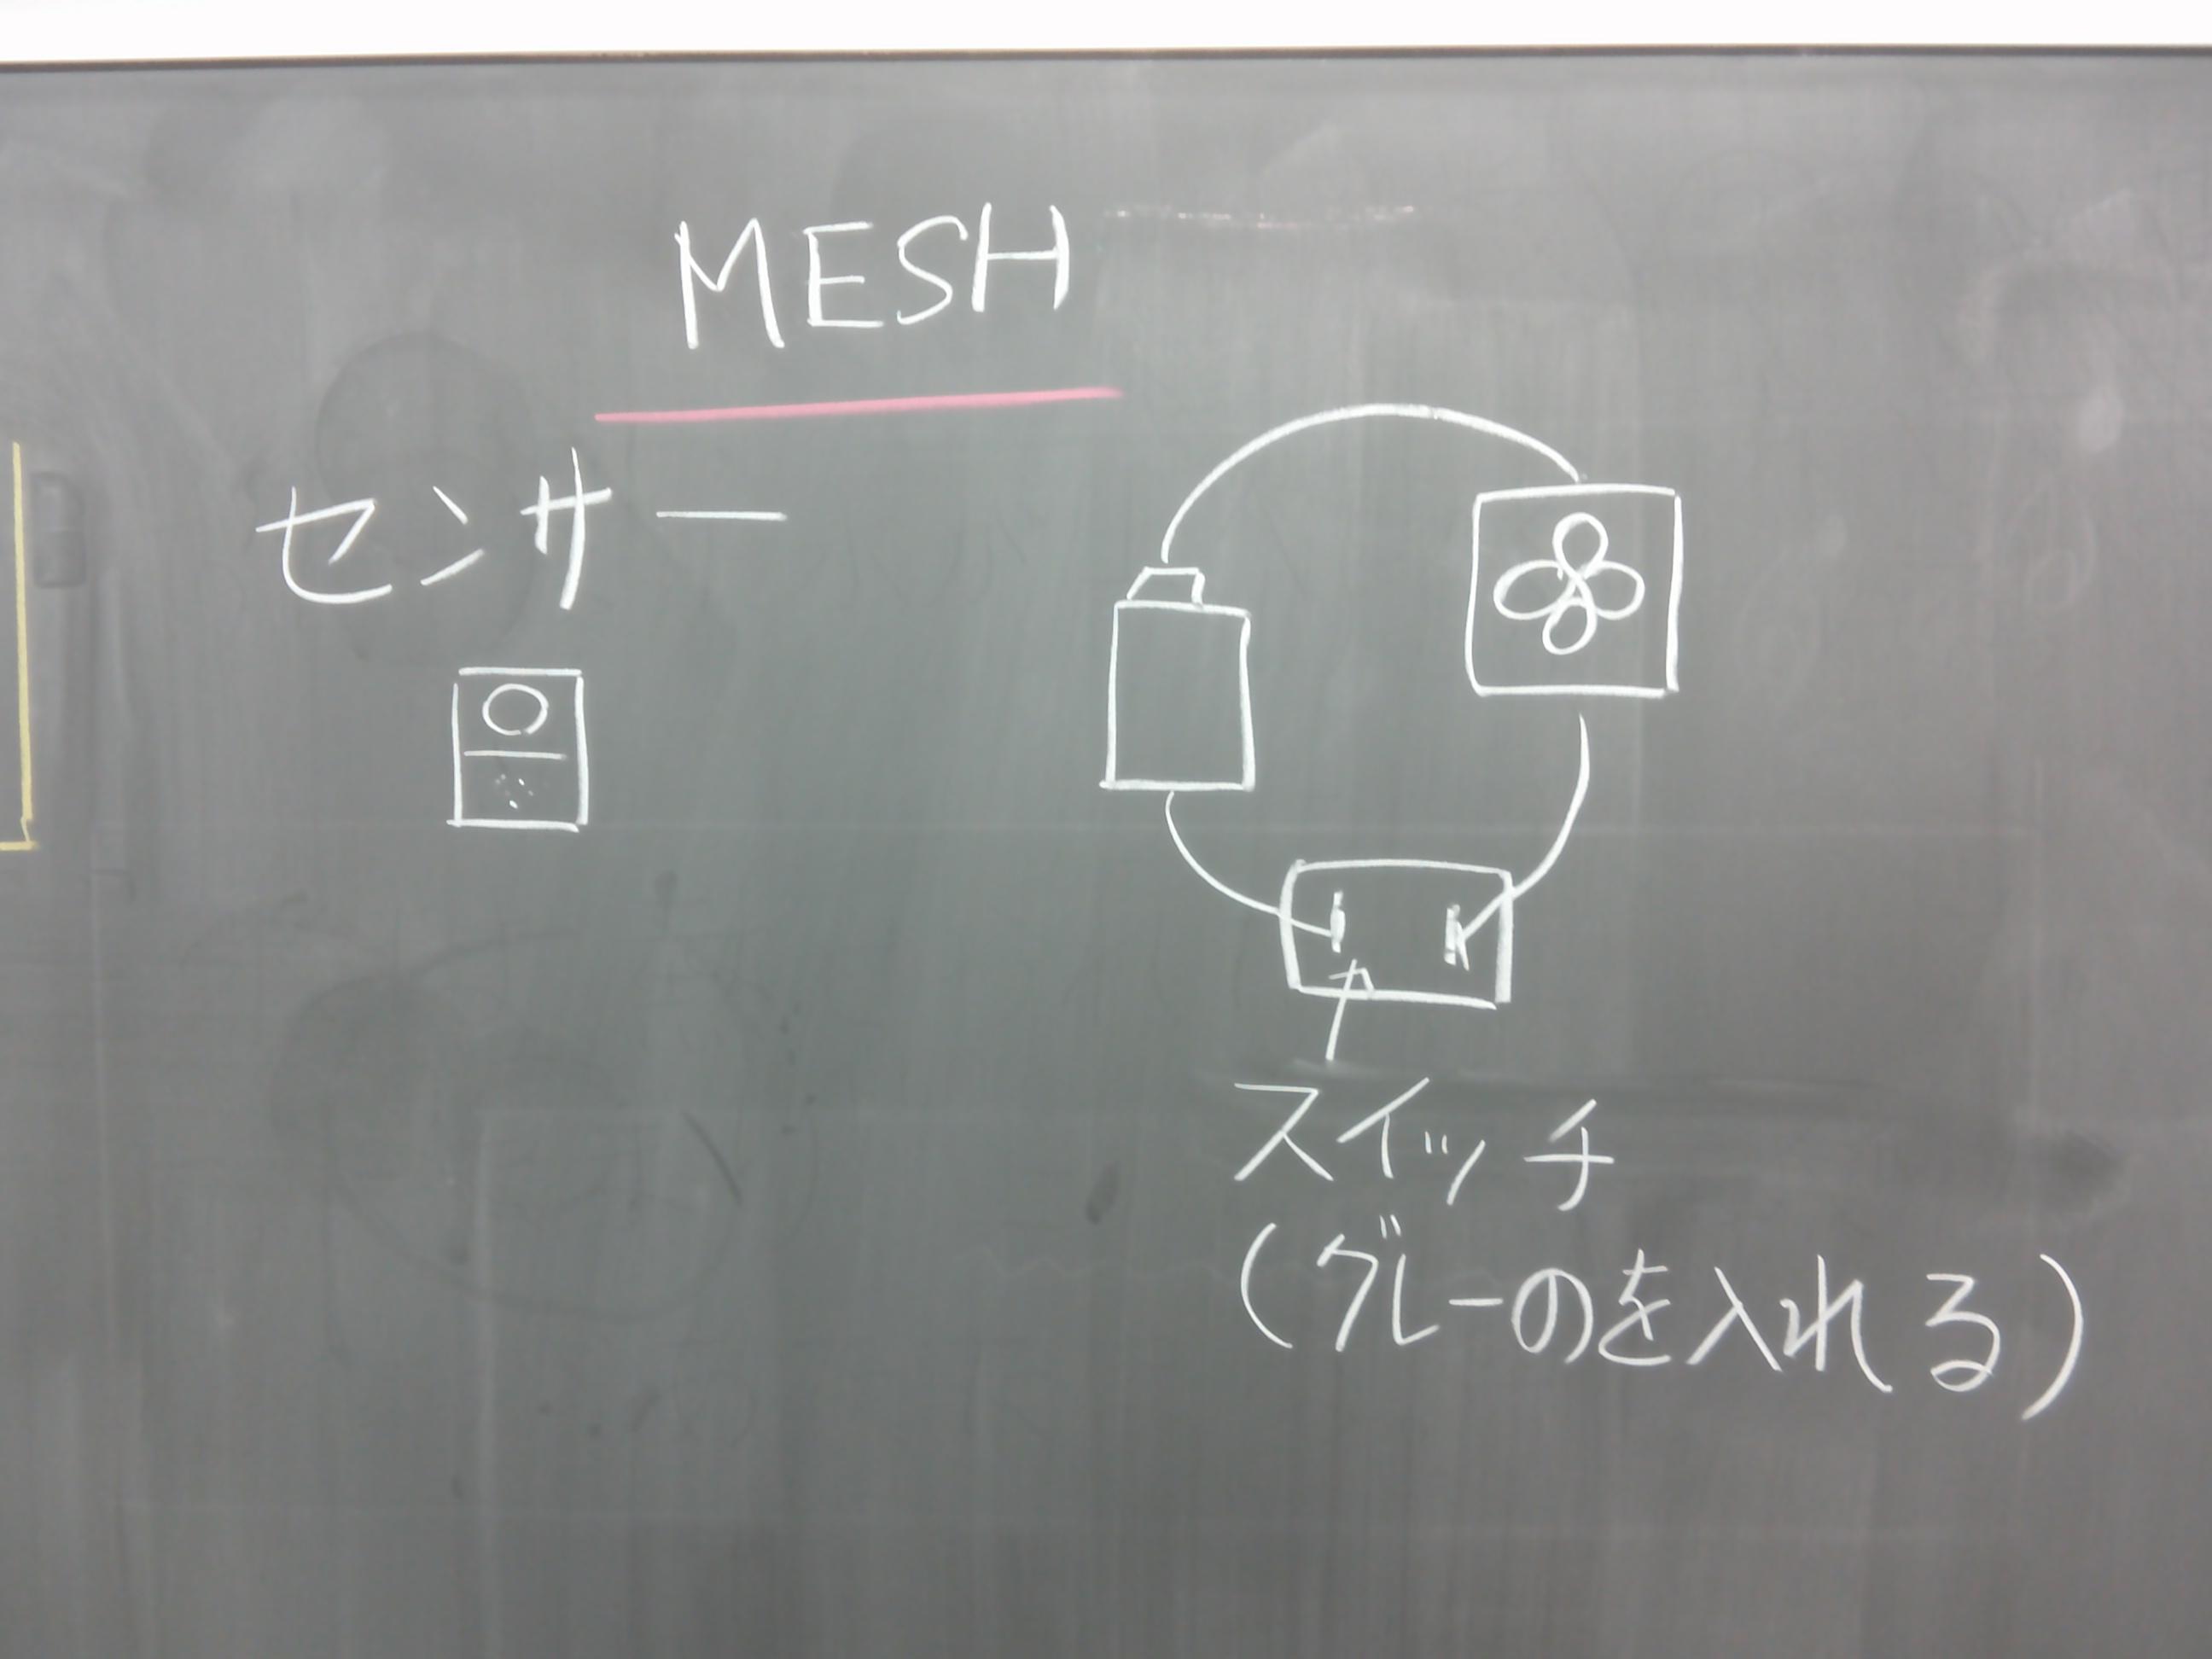 MESH
センサー
スイッチ
(グレーのを入れる)